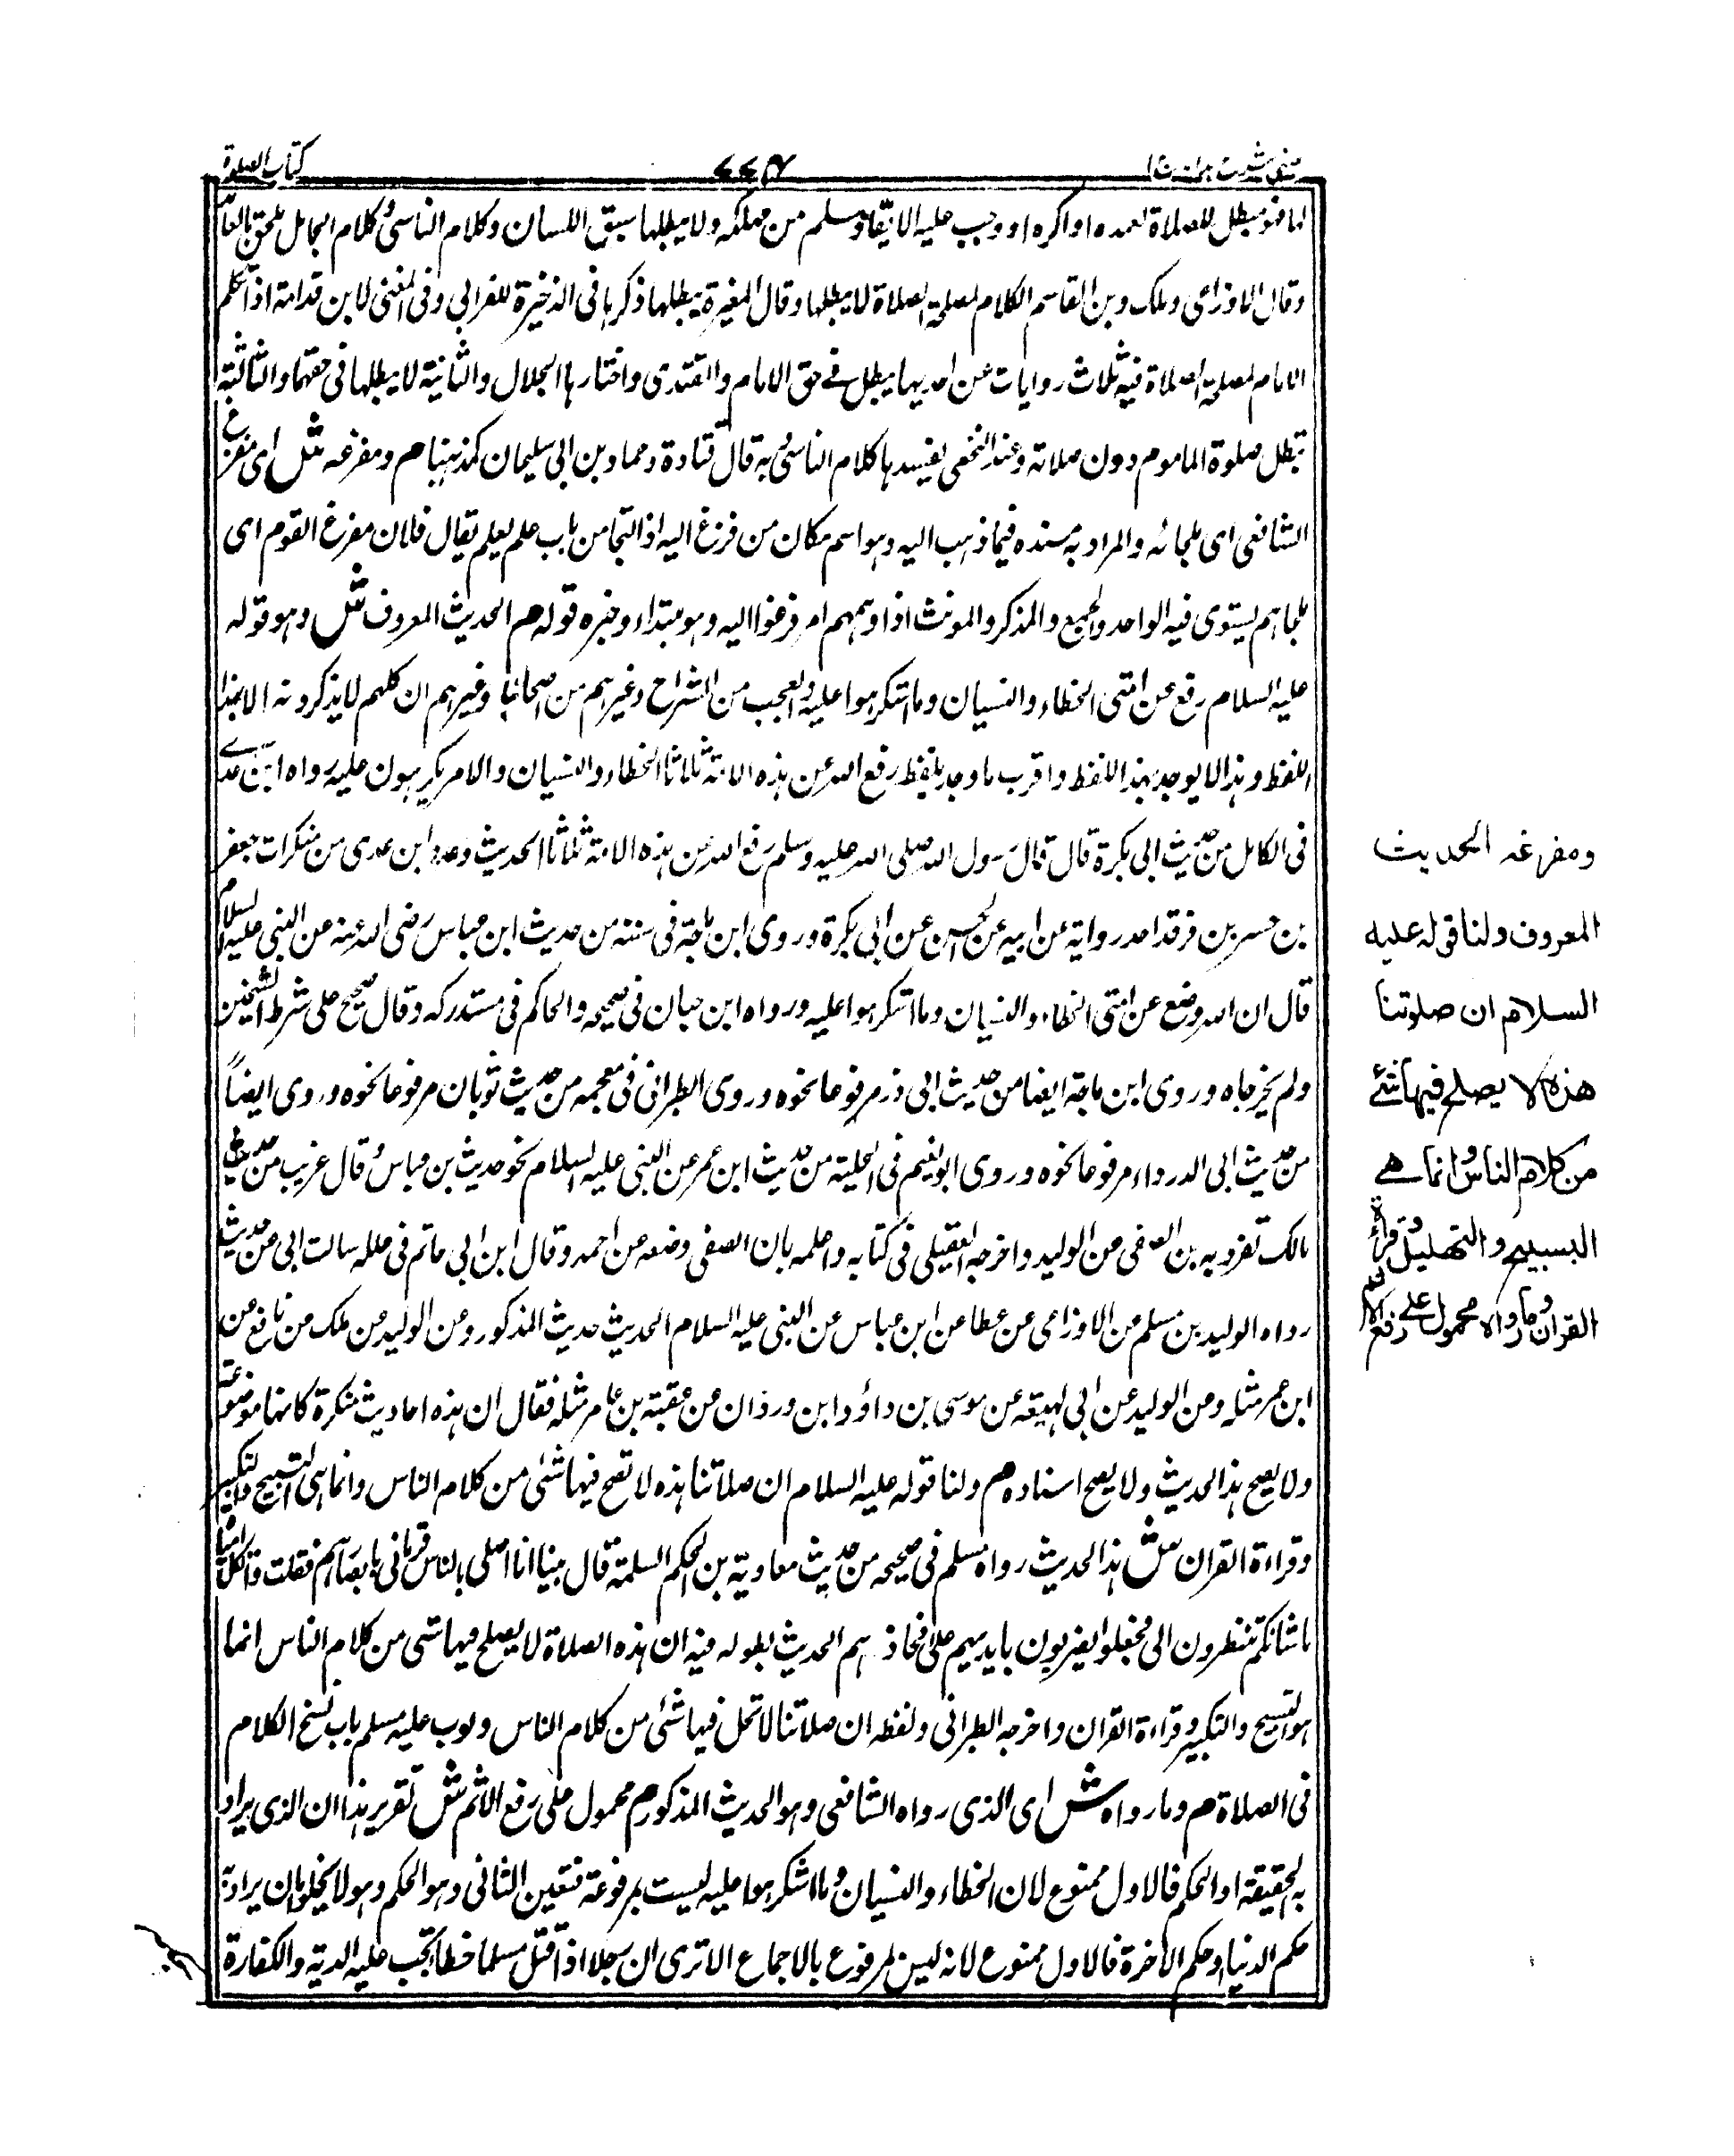 عيني شرح هداية ج ١
٧٧٤
كتاب الصلوة
لها فهو مبطل للصلاة لعمده او اكره او وجب عليه الانقاذ مسلم من مهلكه ولا يبطلها سبق اللسان وكلام الناسى وكلام الجاهل يلحق بالعامد
وقال الاوزاعى وملك وبن القاسم الكلام لمصلحة الصلاة لا يبطلها وقال المغيرة يبطلها ذكرها فى الذخيرة للقرافي وفى المغنى لابن قدامة اذا تكلم
الامام لمصلحة الصلاة فيه ثلاث روايات عن احديها يبطل فى حق الامام والمقتدى واختارها الخلال والثانية لا يبطلها فى حقهما والثالثة
تبطل صلوة الماموم دون صلاته وعند النخعى يفسدها كلام الناسى وبه قال قتادة وحماد بن ابى سليمان كمذهبنا م ومفزعه ش اى مفزع
الشافعى اى ملجائه والمراد به مسنده فيما ذهب اليه وهو اسم مكان من فزع اليه اذا التجا من باب علم يعلم يقال فلان مفزع القوم اى
ملجاهم يستوى فيه الواحد والجمع والمذكر والمونث اذا وهمهم امر فزعوا اليه وهو مبتداء وخبره قوله م الحديث المعروف ش وهو قوله
عليه السلام رفع عن امتى الخطاء والنسيان وما استكرهوا عليه والعجب من الشراح وغيرهم من اصحابنا وغيرهم ان كلهم لا يذكرونه الا بهذا
اللفظ وهذا لا يوجد بهذا اللفظ واقرب ما وجد بلفظ رفع الله عن هذه الامة ثلاثا الخطاء والنسيان والامر يكرهون عليه رواه ابن عدى
فى الكامل من حديث ابى بكرة قال قال رسول الله صلى الله عليه وسلم رفع الله عن هذه الامة ثلاثا الحديث وعده ابن عدى من منكرات جعفر
بن جسر بن فرقد رواية عن ابيه عن الحسن عن ابى بكرة وروى ابن ماجة فى سننه من حديث ابن عباس رضى الله عنه عن النبى عليه السلام
قال ان الله وضع عن امتى الخطاء والنسيان وما استكرهوا عليه ورواه ابن حبان فى صحيحه والحاكم فى مستدركه وقال صحيح على شرط الشيخين
ولم يخرجاه وروى ابن ماجة ايضا من حديث ابى ذر مرفوعا نحوه وروى الطبرانى فى معجمه من حديث ثوبان مرفوعا نحوه وروى ايضاً
من حديث ابى الدرداء مرفوعا نحوه وروى ابو نعيم فى الحلية من حديث ابن عمر عن النبى عليه السلام نحو حديث بن عباس وقال غريب من حديث
مالك تفرد به بن المصفى عن الوليد واخرجه العقيلى فى كتابه واعله بان المصفى وضعه عن احمد وقال ابن ابى حاتم فى علله سالت ابى عن حديث
رواه الوليد بن مسلم عن الاوزاعى عن عطا عن ابن عباس عن النبى عليه السلام الحديث حديث المذكور وعن الوليد عن ملك عن نافع عن
ابن عمر مثله وعن الوليد عن ابى لهيعه عن موسى بن داؤد ابن وردان عن عقبة بن عامر مثله فقال ان هذه احاديث منكرة كانها موضوعة
ولا يصح هذا الحديث ولا يصح اسناده م ولنا قوله عليه السلام ان صلاتنا هذه لا تصح فيها شئى من كلام الناس وانما هى التسبيح والتكبير
وقراءة القران ش هذا الحديث رواه مسلم فى صحيحه من حديث معاوية بن الحكم السلمة قال بينا انا اصلى بالناس فرمانى بابصارهم فقلت واثكل امياه
ما شانكم تنظرون الى فجعلوا يضربون بايديهم على افخاذهم الحديث بطوله فيه ان هذه الصلاة لا يصلح فيها شى من كلام الناس انما
هو التسبيح والتكبير وقراءة القران واخرجه الطبرانى ولفظه ان صلاتنا لا تحل فيها شئى من كلام الناس وبوب عليه مسلم باب نسخ الكلام
فى الصلاة م وما رواه ش اى الذى رواه الشافعى وهو الحديث المذكور م محمول على رفع الاثم ش تقرير هذا ان الذى يراد
به الحقيقة او الحكم فالاول ممنوع لان الخطاء والنسيان وما استكرهوا عليه ليست بمرفوعة فتعين الثانى وهو الحكم وهو لا يخلو بان يراد به
حكم الدنيا وحكم الآخرة فالاول ممنوع لانه ليس بمرفوع بالاجماع الا ترى ان رجلا اذا قتل مسلما خطاء تجب عليه الدية والكفارة
ومفزعه الحديث
المعروف ولنا قوله عليه
السلام ان صلوتنا
هذه لا يصلح فيها شئے
من كلام الناس وانما هے
التسبيح والتهليل وقراءة
القران وما رواه محمول على رفع الاثم